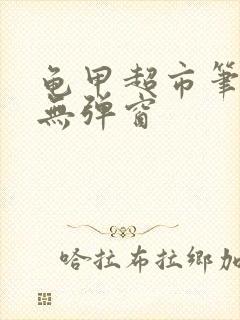 龟甲超市筆
無弹窗
哈拉布拉鄉加